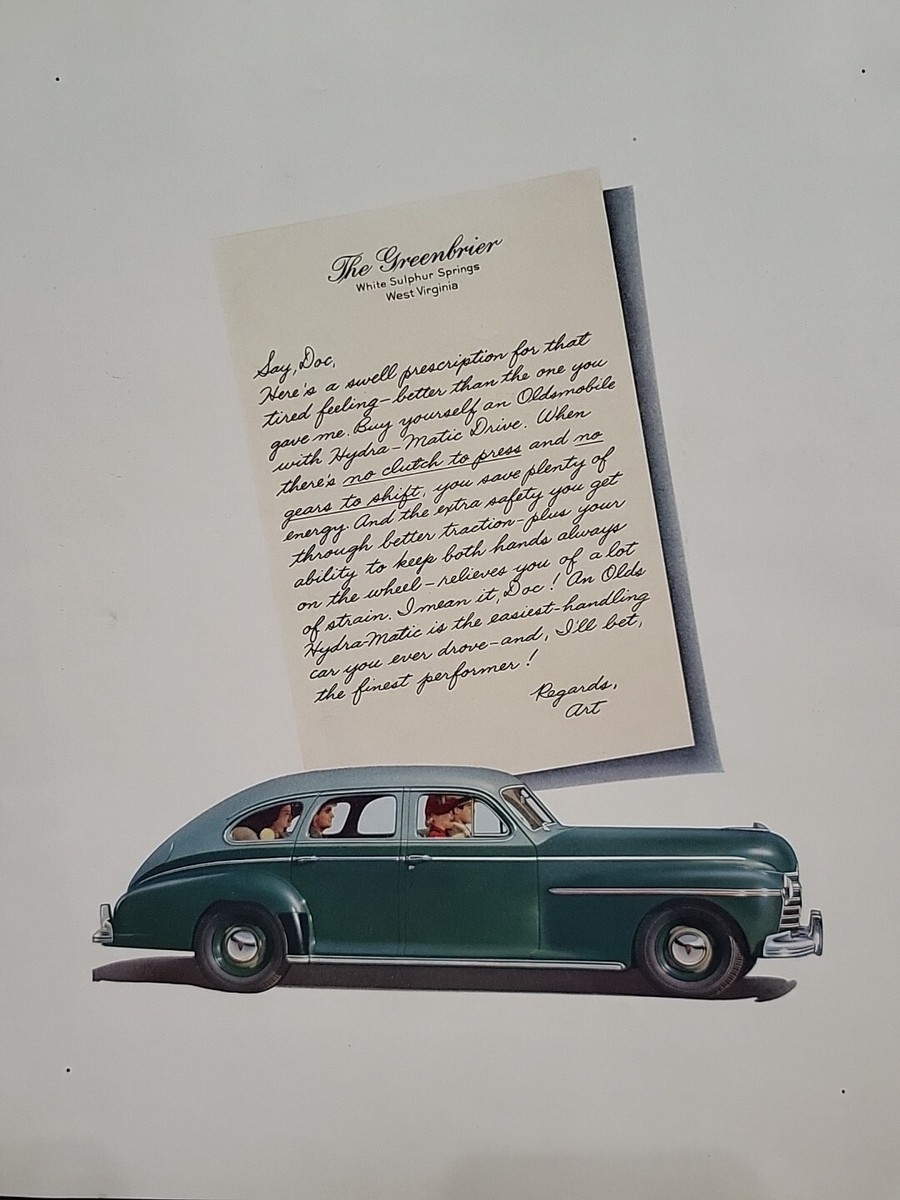 The Greenbrier
White Sulphur Springs
West Virginia
Say, Doc,
Here's a swell prescription for that
tired feeling—better than the one you
gave me. Buy yourself an Oldsmobile
with Hydra-Matic Drive. When
there's no clutch to press and no
gears to shift, you save plenty of
energy. And the extra safety you get
through better traction—plus your
ability to keep both hands always
on the wheel—relieves you of a lot
of strain. I mean it, Doc! An Olds
Hydra-Matic is the easiest-handling
car you ever drove—and, I'll bet,
the finest performer!
Regards,
Art